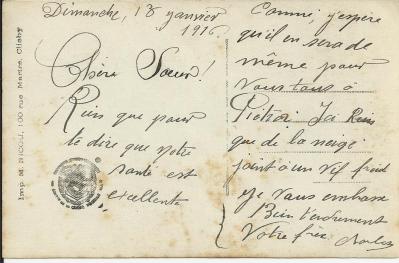 Dimanche, 18 janvier
1916
Chère Soeur!
Rien que pour
te dire que notre
santé est
excellente
Comme, j'espère
qu'il en sera de
même pour
vous tous à
Ici Rien
que de la neige
joint à un vif froid
Je vous embrasse
Bien tendrement
Votre frère Charles
Imp. M. NICOU, 100 rue Martre, Clichy